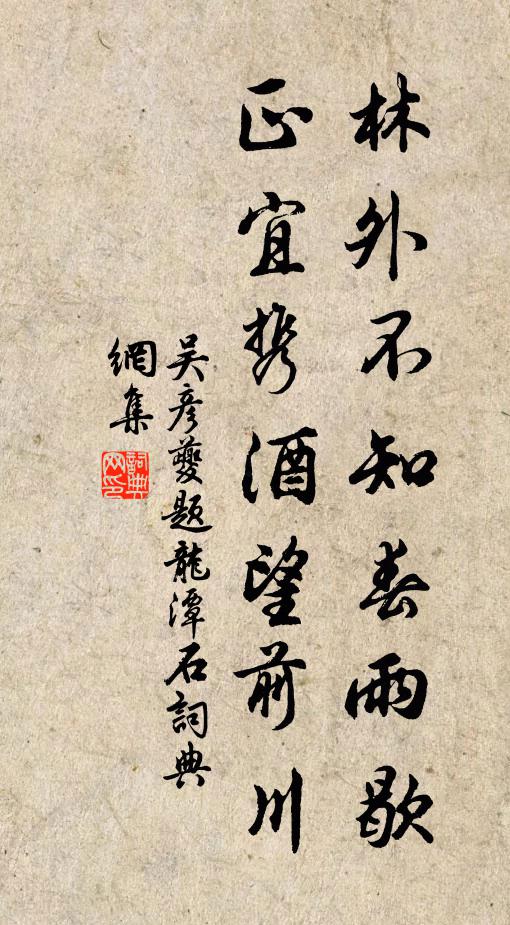 林外不知春雨歇
正宜携酒望前川
吴彦夔题龍潭石詞典
網集
詞典
网印